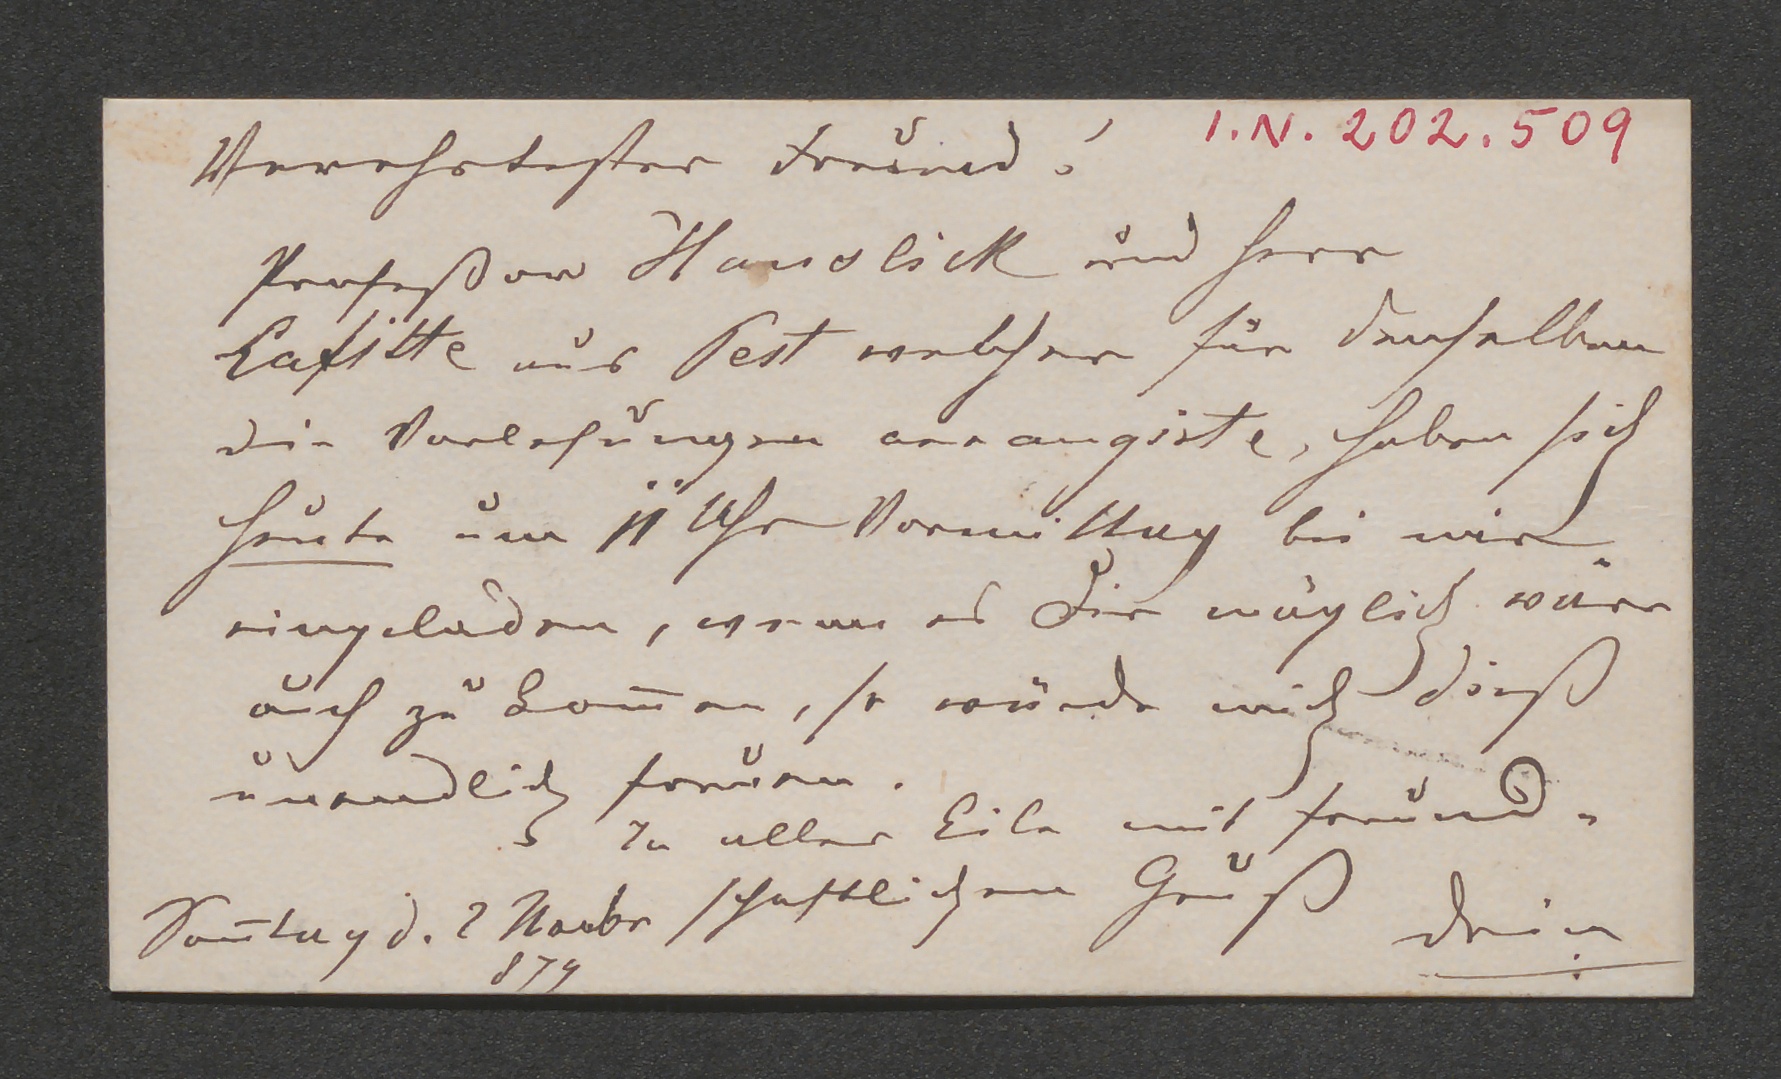 I.N. 202.509
Verehrtester Freund!
Profeßor Hanslick und Herr
Lafitte aus Pest welcher für denselben
die Vorlesungen arrangirte, haben sich
heute um 11 Uhr Vormittag bei mir
eingeladen, wenn es Dir möglich wäre
auch zu kom̅en, so würde mich dieß
unendlich freuen.
In aller Eile mit freund-
schaftlichem Gruß
Dein
Son̅tag d. 2 Novbr
879